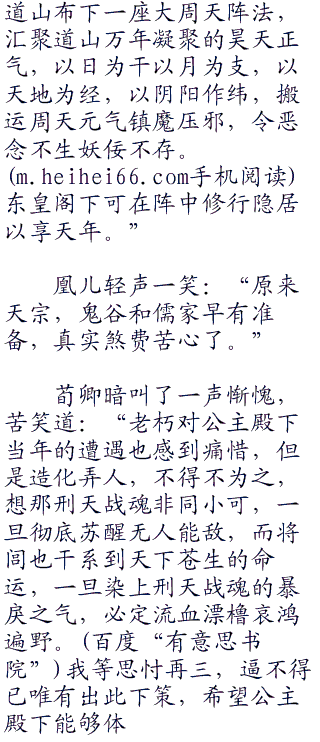 道山布下一座大周天阵法，
汇聚道山万年凝聚的昊天正
气，以日为干以月为支，以
天地为经，以阴阳作纬，搬
运周天元气镇魔压邪，令恶
念不生妖佞不存。
(m.heihei66.com手机阅读)
东皇阁下可在阵中修行隐居
以享天年。”
凰儿轻声一笑：“原来
天宗，鬼谷和儒家早有准
备，真实煞费苦心了。”
荀卿暗叫了一声惭愧，
苦笑道：“老朽对公主殿下
当年的遭遇也感到痛惜，但
是造化弄人，不得不为之，
想那刑天战魂非同小可，一
旦彻底苏醒无人能敌，而将
闾也干系到天下苍生的命
运，一旦染上刑天战魂的暴
戾之气，必定流血漂橹哀鸿
遍野。(百度“有意思书
院”)我等思忖再三，逼不得
已唯有出此下策，希望公主
殿下能够体